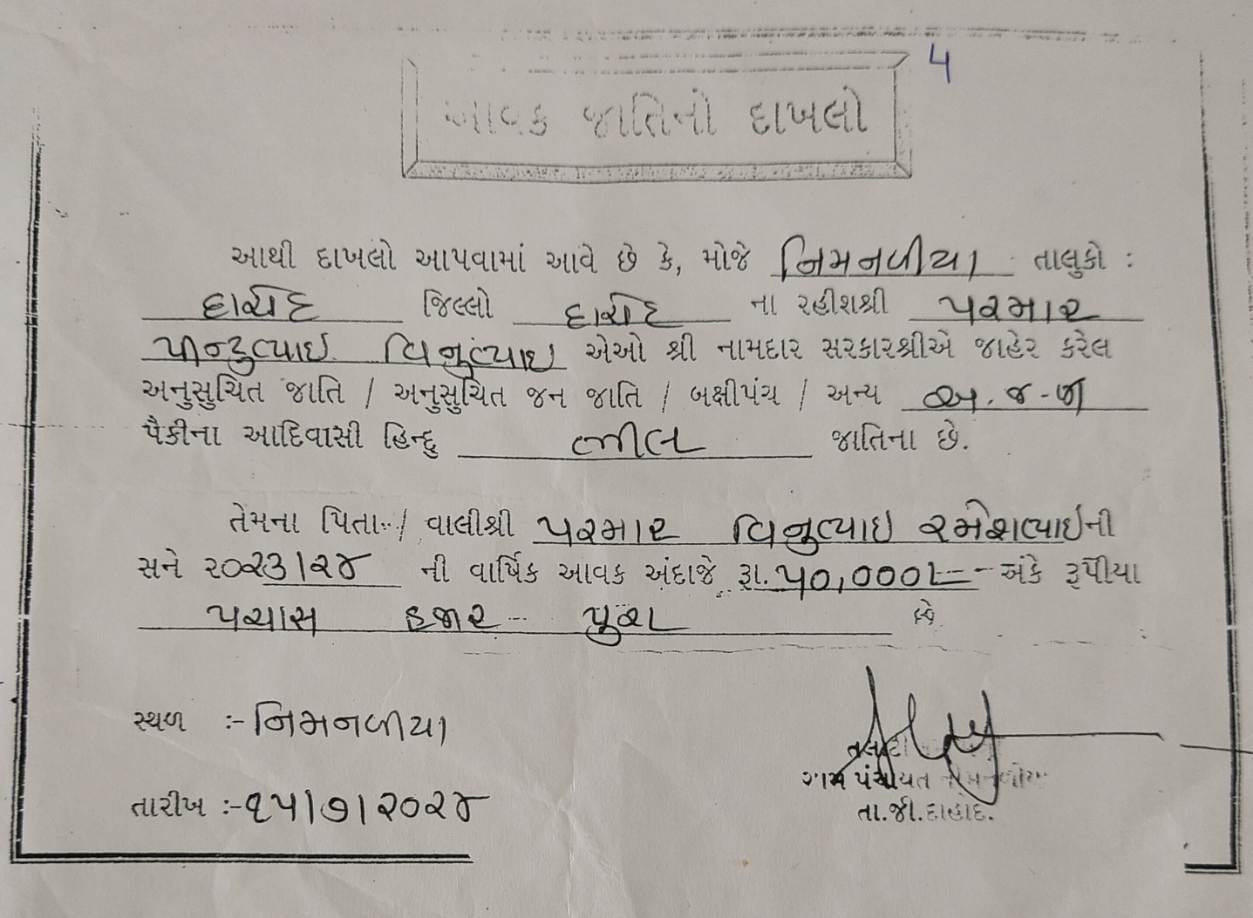 4
આવક જાતિનો દાખલો
આથી દાખલો આપવામાં આવે છે કે, મોજે નિમનળીયા તાલુકો :
દાહોદ જિલ્લો દાહોદ ના રહીશશ્રી પરમાર
પીન્ટુભાઇ વિનુભાઇ એઓ શ્રી નામદાર સરકારશ્રીએ જાહેર કરેલ
અનુસુચિત જાતિ / અનુસુચિત જન જાતિ / બક્ષીપંચ / અન્ય અ.જ.જા
પૈકીના આદિવાસી હિન્દુ ભીલ જાતિના છે.
તેમના પિતા / વાલીશ્રી પરમાર વિનુભાઇ રમેશભાઇની
સને ૨૦૨૩/૨૪ ની વાર્ષિક આવક અંદાજે રૂા. ૫૦,૦૦૦/= અંકે રૂપીયા
પચાસ હજાર પુરા છે
સ્થળ :- નિમનળીયા
તારીખ :- ૧૫/૭/૨૦૨૪
તલાટી
ગ્રામ પંચાયત
તા.જી.દાહોદ.